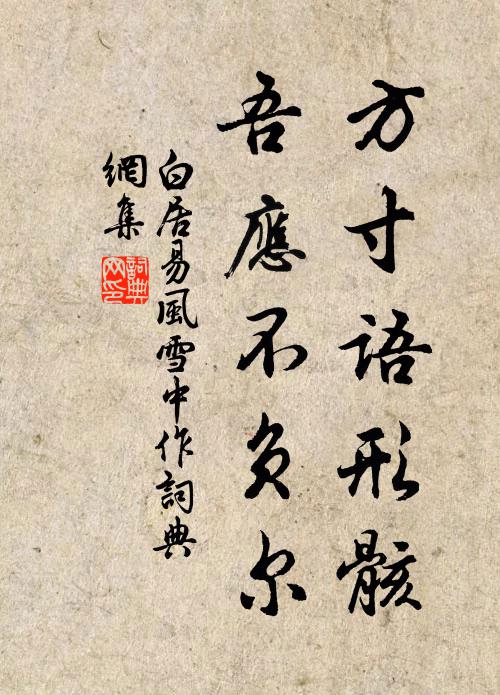 方寸语形骸
吾應不负尔
白居易風雪中作詞典
網集
詞典網印